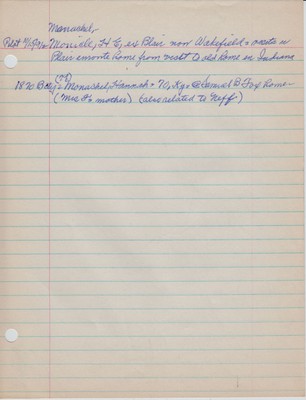 Monuskel,
Pilot Monisill, H E, ex Blair now Wakefield - was in
Blair enroute home from visit to old home in Indiana
(?)
1870 Monuskel, Hannah - 70, Ky - @ Samuel B Fox home -
(Mrs F's mother) (also related to Neff)